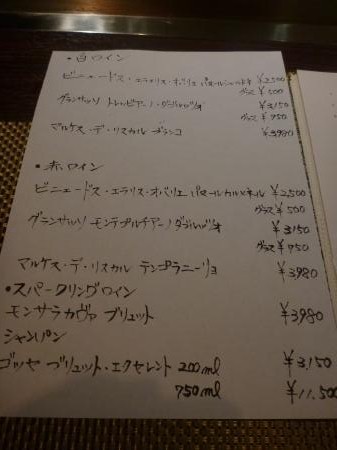 ・白ワイン
ビニェードス・エラリス・オバリエ パヌール ¥2,500
グラス ¥500
グランサッソ トレッビアーノ・ダブルッツォ ¥3,150
グラス ¥750
マルケス・デ・リスカル ブランコ ¥3,980
・赤ワイン
ビニェードス・エラリス・オバリエ パヌールカルメネル ¥2,500
グラス ¥500
グランサッソ モンテプルチアーノ ダブルッツォ ¥3,150
グラス ¥750
マルケス・デ・リスカル テンプラニーリョ ¥3,980
・スパークリングワイン
モンサラ カヴァ ブリュット ¥3,980
シャンパン
ゴッセ ブリュット・エクセレント 200ml ¥3,150
750ml ¥11,500